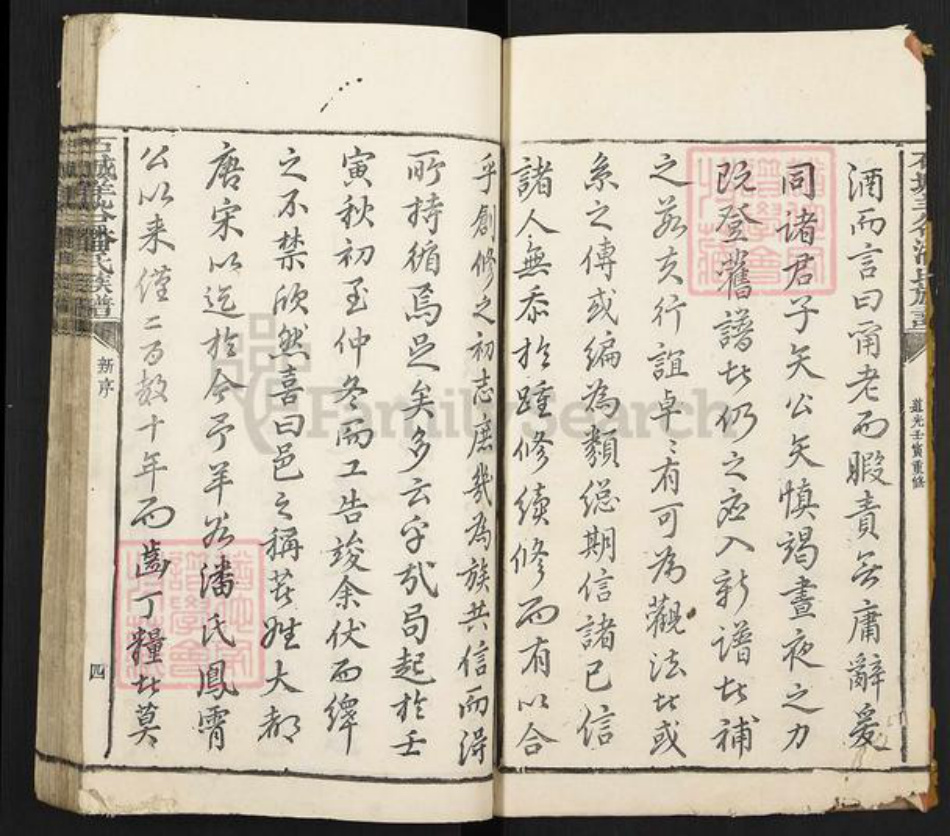 道光壬寅重修
酒而言曰甯老而暇責無庸辭爰
同諸君子矢公矢慎竭晝夜之力
既登舊譜者仍之應入新譜者補
之若夫行誼卓〻有可為觀法者或
系之傳或編為類總期信諸己信
諸人無忝於踵修續修而有以合
乎創修之初志庶幾為族共信而得
所持循焉足矣多云乎哉局起於壬
寅秋初至仲冬而工告竣余伏而繹
之不禁欣然喜曰邑之稱茂姓大都
唐宋以迄於今予羊谷潘氏鳳霄
公以来僅二百数十年而齒丁糧者莫
石城羊谷潘氏族譜
新序
四
FamilySearch